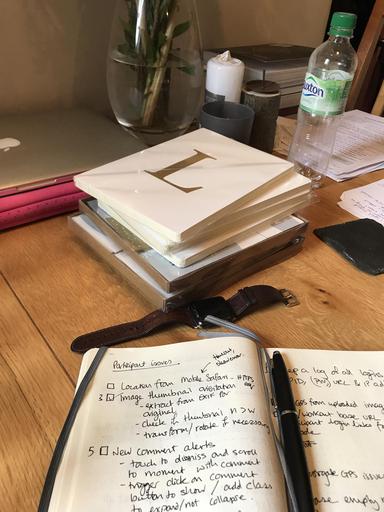 L
Buxton
Participant issues
Location from mobile Safari - HTTPS
3 Image thumbnail orientation
- extract from EXIF for
original
- check in thumbnail n > w
- transform/rotate if necessary
5 New comment alerts
- touch to dismiss and scroll
to moment with comment
- trigger click on comment
button to show / add class
to expand/not collapse.
a log of all logins
GPS from uploaded image
workout base url
GPS in
ase empty